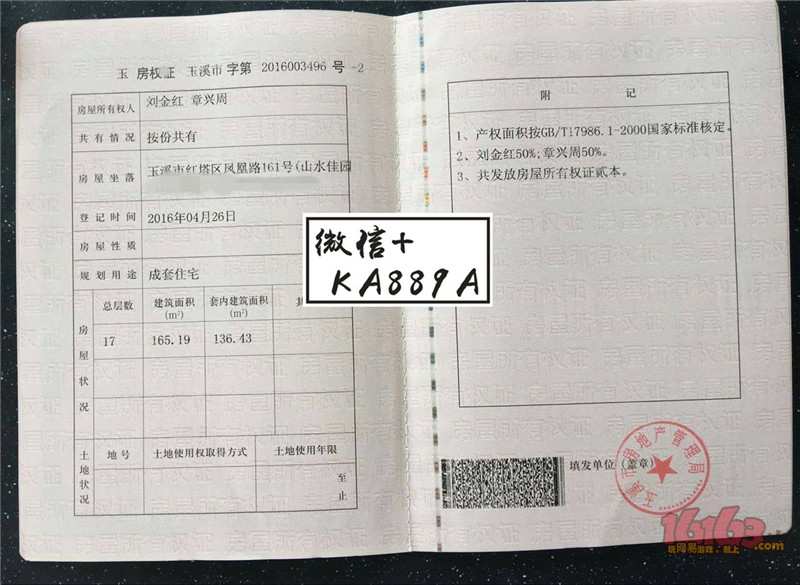 玉 房权证 玉溪市 字第 2016003496 号 -2
房屋所有权人 刘金红 章兴周
共有情况 按份共有
房屋坐落 玉溪市红塔区凤凰路161号(山水佳园
登记时间 2016年04月26日
房屋性质
规划用途 成套住宅
房屋状况
总层数 建筑面积 (m²) 套内建筑面积 (m²)
17 165.19 136.43
土地状况
地号 土地使用权取得方式 土地使用年限
至
止
附 记
1、产权面积按GB/T17986.1-2000国家标准核定。
2、刘金红50%;章兴周50%。
3、共发放房屋所有权证贰本。
微信+
KA889A
填发单位 (盖章)
玉溪市房地产管理局
16163.com
玩网易游戏,就上